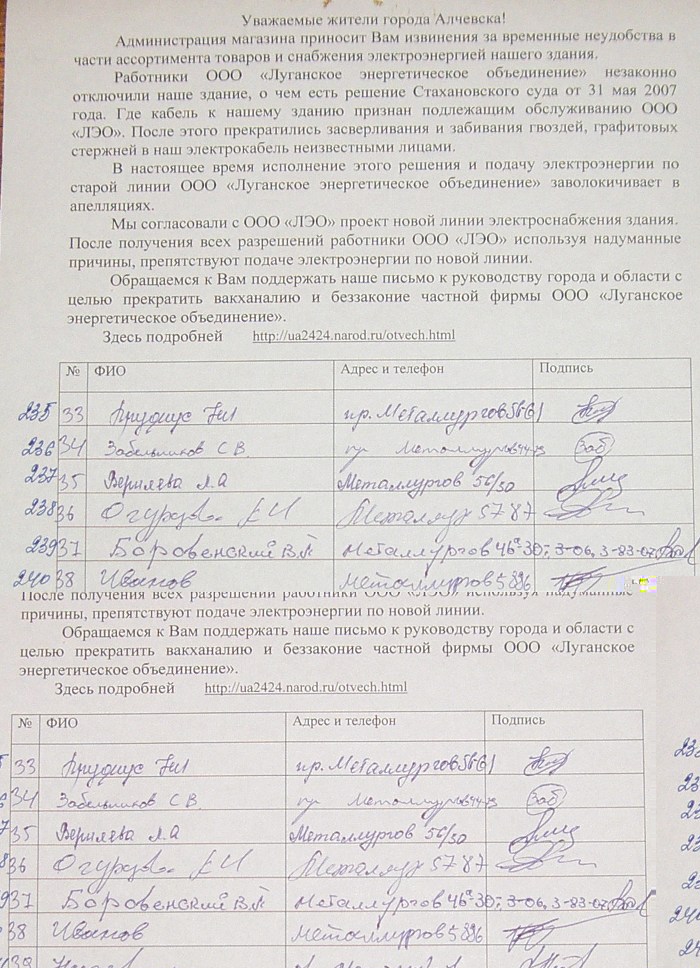 Уважаемые жители города Алчевска!
Администрация магазина приносит Вам извинения за временные неудобства в
части ассортимента товаров и снабжения электроэнергией нашего здания.
Работники ООО «Луганское энергетическое объединение» незаконно
отключили наше здание, о чем есть решение Стахановского суда от 31 мая 2007
года. Где кабель к нашему зданию признан подлежащим обслуживанию ООО
«ЛЭО». После этого прекратились засверливания и забивания гвоздей, графитовых
стержней в наш электрокабель неизвестными лицами.
В настоящее время исполнение этого решения и подачу электроэнергии по
старой линии ООО «Луганское энергетическое объединение» заволокичивает в
апелляциях.
Мы согласовали с ООО «ЛЭО» проект новой линии электроснабжения здания.
После получения всех разрешений работники ООО «ЛЭО» используя надуманные
причины, препятствуют подаче электроэнергии по новой линии.
Обращаемся к Вам поддержать наше письмо к руководству города и области с
целью прекратить вакханалию и беззаконие частной фирмы ООО «Луганское
энергетическое объединение».
Здесь подробней http://ua2424.narod.ru/otvech.html
№ ФИО Адрес и телефон Подпись
235 33 пр. Металлургов
236 34 Забельников С В. пр Металлургов Заб
237 35 Л.А Металлургов 56/50
238 36 57 87
239 37 Боровенский В.П Металлургов 3-06, 3-83-
240 38 Иванов Металлургов
После получения всех разрешений работники ООО «ЛЭО» используя надуманные
причины, препятствуют подаче электроэнергии по новой линии.
Обращаемся к Вам поддержать наше письмо к руководству города и области с
целью прекратить вакханалию и беззаконие частной фирмы ООО «Луганское
энергетическое объединение».
Здесь подробней http://ua2424.narod.ru/otvech.html
№ ФИО Адрес и телефон Подпись
33 пр. Металлургов
34 Забельников С В. пр Металлургов Заб
35 Л.А Металлургов 56/50
36 57 87
37 Боровенский В.П Металлургов 3-06, 3-83-
38 Иванов Металлургов